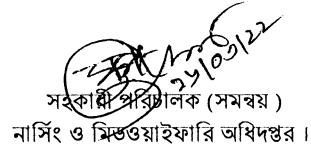 ২৮/০৩/২২
সহকারী পরিচালক (সমন্বয় )
নার্সিং ও মিডওয়াইফারি অধিদপ্তর ।